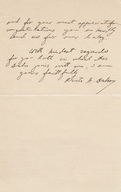 and for your most appreciative
congratulations you so kindly
send us for our baby.
With kindest regards
for you both in which Mrs.
joins with me, I am
yours faithfully